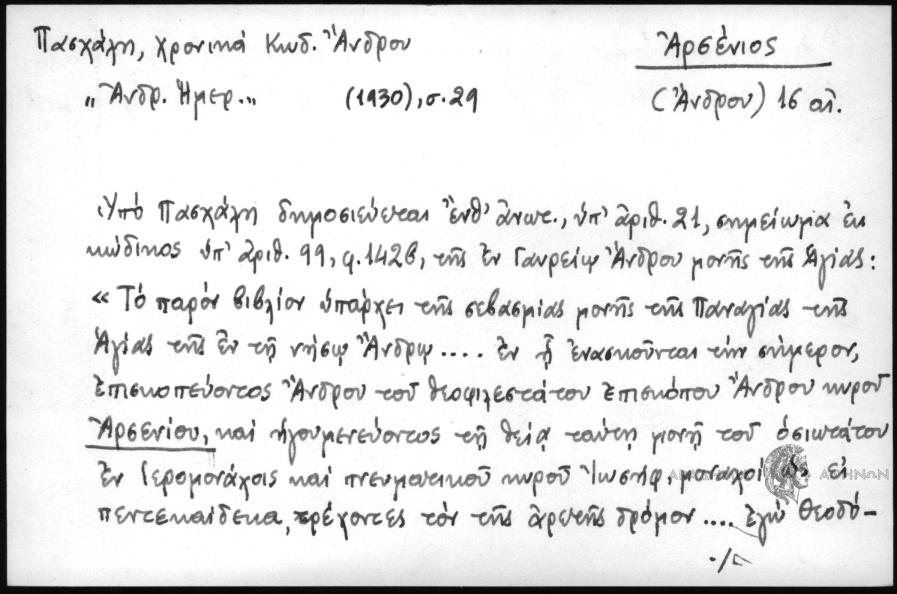 Πασχάλη, χρονικά Κωδ. Ἄνδρου
Ἀρσένιος
„ Ἀνδρ. Ἡμερ." (1930), σ. 29
(Ἄνδρου) 16 αἰ.
Ὑπό Πασχάλη δημοσιεύεται ἔνθ' ἄνωτ., ὑπ' ἀριθ. 21, σημείωμα ἐκ
κώδικος ὑπ' ἀριθ. 99, φ. 142β, τῆς ἐν Γαυρείῳ Ἄνδρου μονῆς τῆς Ἁγίας:
« Τό παρόν βιβλίον ὑπάρχει τῆς σεβασμίας μονῆς τῆς Παναγίας τῆς
Ἁγίας τῆς ἐν τῇ νήσῳ Ἄνδρῳ .... ἐν ᾗ ἐνασκοῦνται τήν σήμερον,
ἐπισκοπεύοντος Ἄνδρου τοῦ θεοφιλεστάτου ἐπισκόπου Ἄνδρου κυροῦ
Ἀρσενίου, καί ἡγουμενεύοντος τῇ θείᾳ ταύτῃ μονῇ τοῦ ὁσιωτάτου
ἐν Ἱερομονάχοις καί πνευματικοῦ κυροῦ Ἰωσήφ, μοναχοί εἰ
πεντεκαίδεκα, τρέχοντες τόν τῆς ἀρετῆς δρόμον .... ἐγώ Θεοδό–
./.
ΑΘΗΝΩΝ